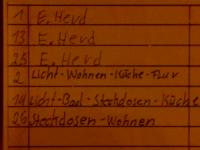 1 E. Herd
13 E. Herd
25 E. Herd
2 Licht-Wohnen-Küche-Flur
19 Licht-Bad-Steckdosen-Küche
26 Steckdosen-Wohnen